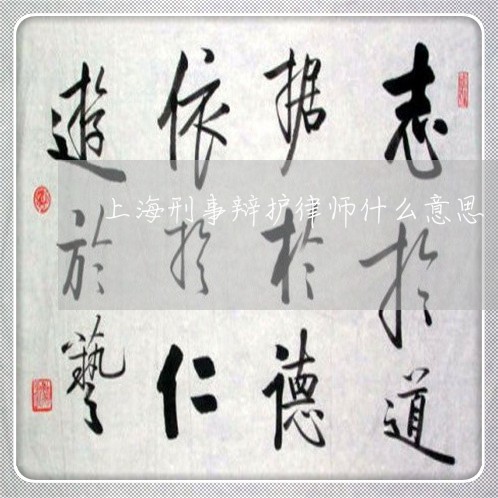 志於道
据於德
依於仁
遊於藝
上海刑事辩护律师什么意思